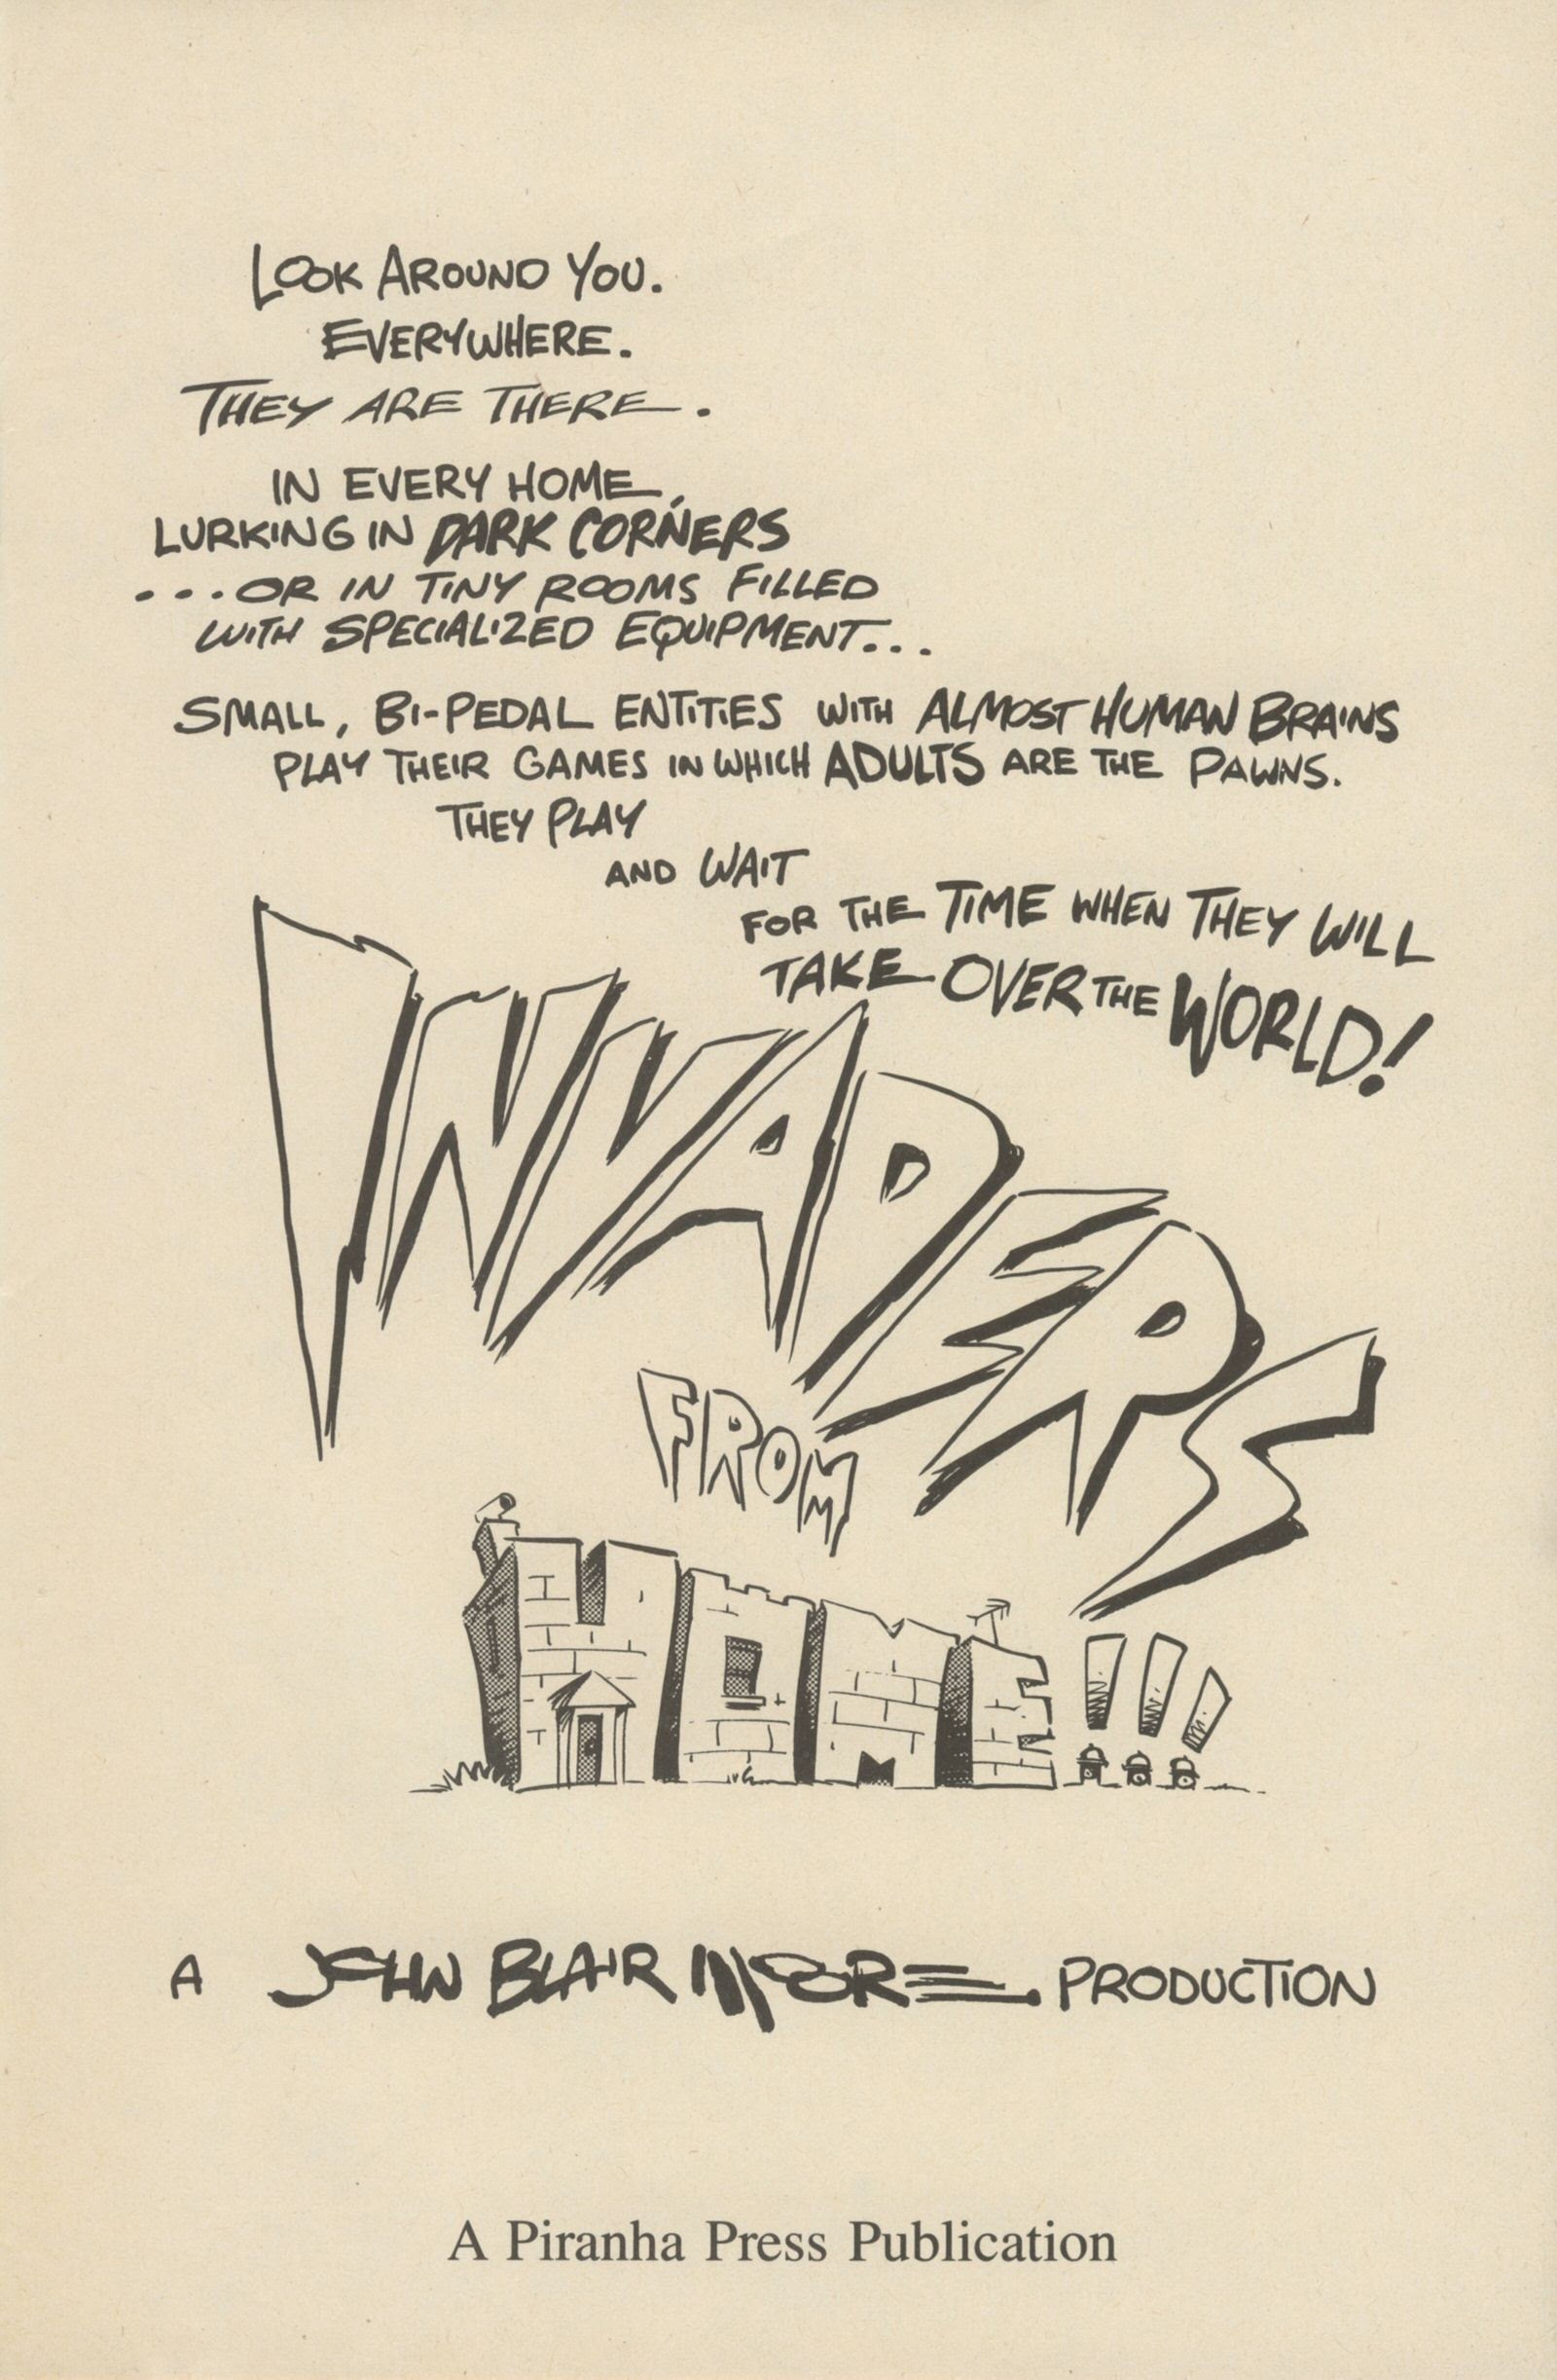 LOOK AROUND YOU.
EVERYWHERE.
THEY ARE THERE.
IN EVERY HOME,
LURKING IN DARK CORNERS
...OR IN TINY ROOMS FILLED
WITH SPECIALIZED EQUIPMENT...
SMALL, BI-PEDAL ENTITIES WITH ALMOST HUMAN BRAINS
PLAY THEIR GAMES IN WHICH ADULTS ARE THE PAWNS.
THEY PLAY
AND WAIT
FOR THE TIME WHEN THEY WILL
TAKE OVER THE WORLD!
INVADERS
FROM
HOME!!!
A JOHN BLAIR MOORE PRODUCTION
A Piranha Press Publication